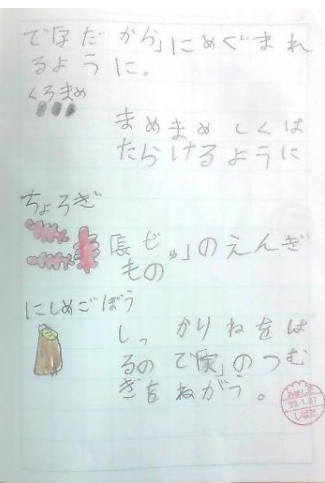 で「子だから」にめぐまれ
るように。
くろまめ
まめまめしくは
たらけるように
ちょろぎ
「長じゅ」のえんぎ
もの
にしめごぼう
しっかりねをは
るので「家」のつむ
ぎをねがう。
しばた